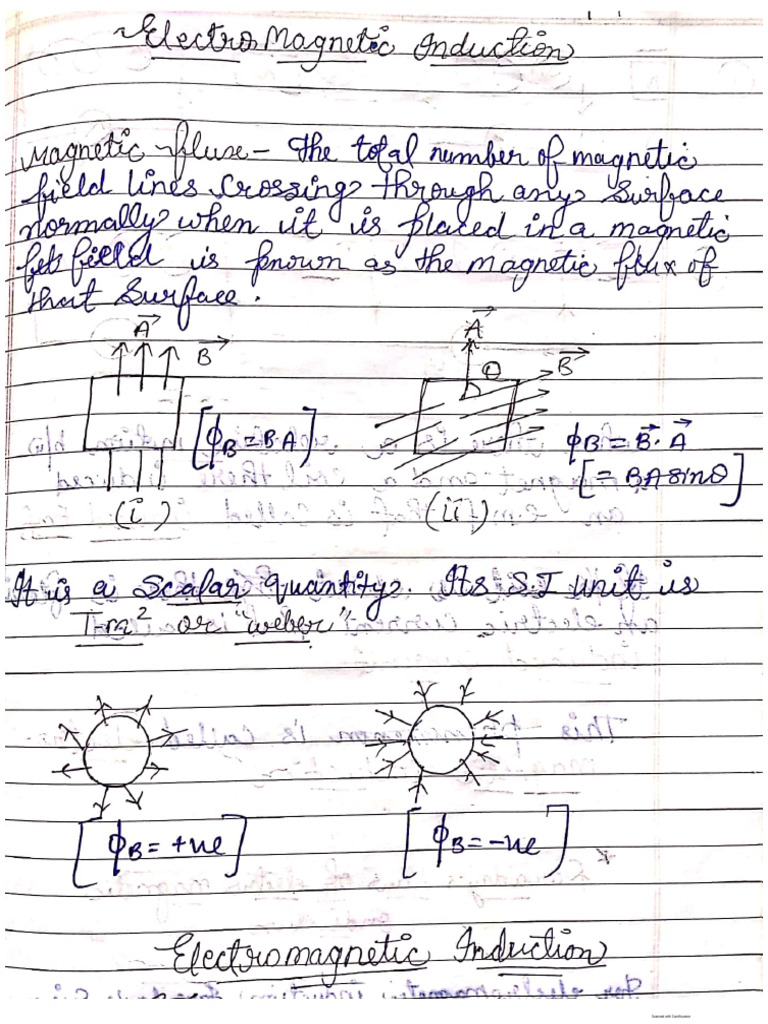 ElectroMagnetic Induction
Magnetic fluxe - The total number of magnetic
field lines crossing through any surface
normally when it is placed in a magnetic
field is known as the magnetic flux of
that surface.
A⃗ A⃗
B⃗ B⃗
θ
[ϕB = B·A] ϕB = B⃗·A⃗
[= BA sinθ]
(i) (ii)
It is a scalar quantity. Its S.I unit is
T-m² or "weber"
[ϕB = +ve] [ϕB = -ve]
Electromagnetic Induction
Scanned with CamScanner